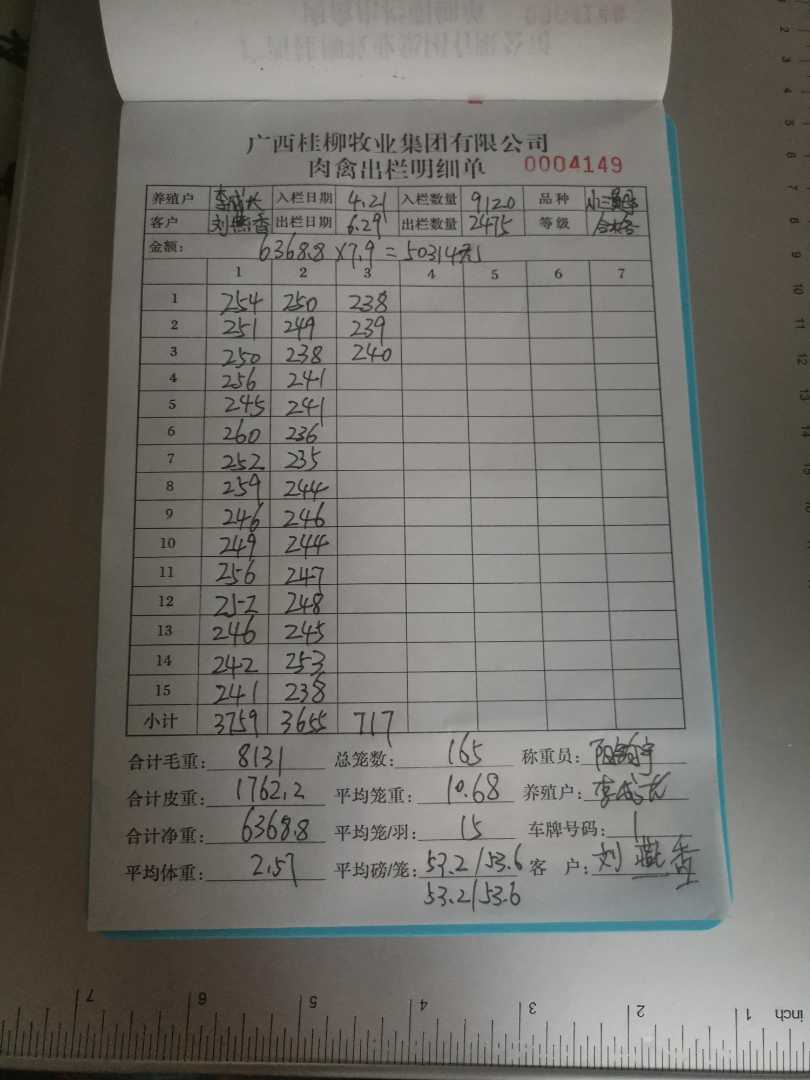 广西桂柳牧业集团有限公司
肉禽出栏明细单 0004149
养殖户 李成长 入栏日期 4.21 入栏数量 9120 品种
客户 刘燕香 出栏日期 6.29 出栏数量 2475 等级 合格
金额: 6368.8×7.9=50314元
1 2 3 4 5 6 7
1 254 250 238
2 251 249 239
3 250 238 240
4 256 241
5 245 241
6 260 236
7 252 235
8 259 244
9 246 246
10 249 244
11 256 247
12 252 248
13 246 245
14 242 253
15 241 238
小计 3759 3655 717
合计毛重: 8131 总笼数: 165 称重员:
合计皮重: 1762.2 平均笼重: 10.68 养殖户: 李成长
合计净重: 6368.8 平均笼/羽: 15 车牌号码: 1
平均体重: 2.57 平均磅/笼: 53.2/53.6 客 户: 刘燕香
53.2/53.6
7 6 5 4 3 2 1 inch